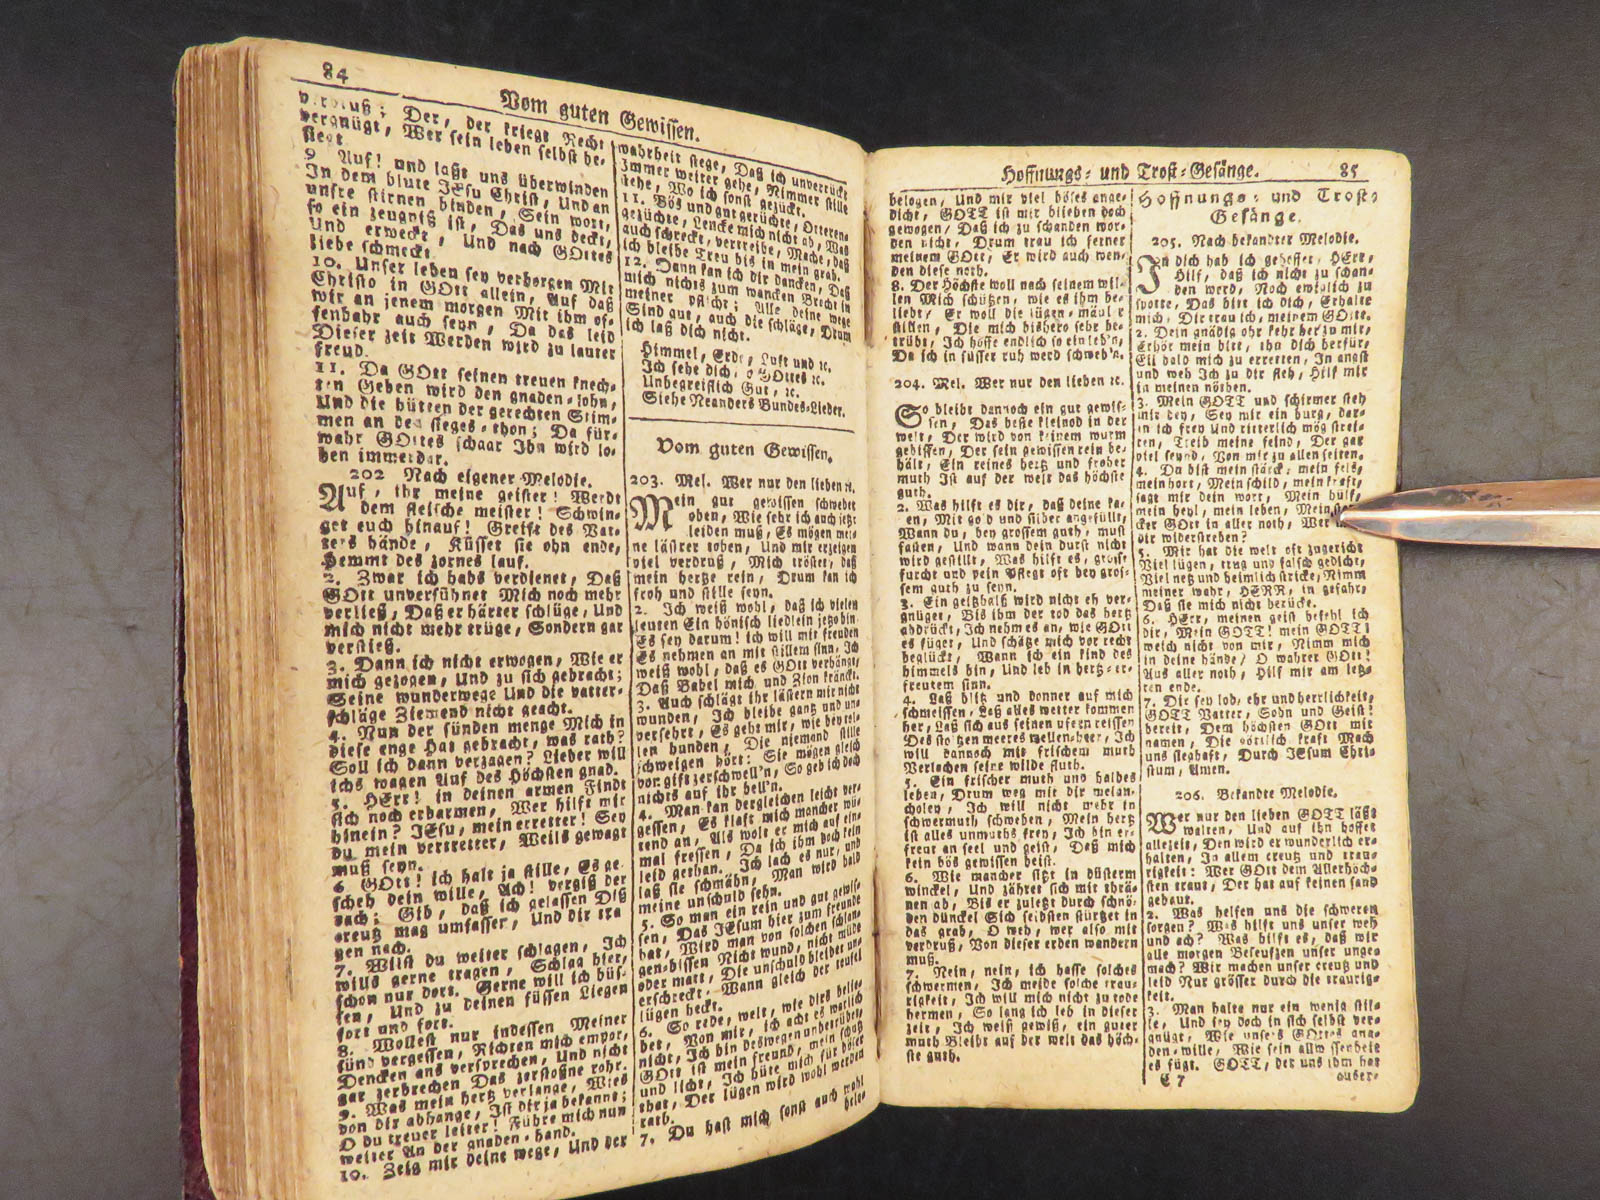 84
Vom guten Gewissen.
Der, der kriegt Recht
vergnügt, Wer sein leben selbst be-
siegt
9 Auf! und laßt uns überwinden
In dem blute JEsu Christ, Und an
unsre stirnen binden, Sein wort,
so ein zeugniß ist, Das uns deckt,
Und erweckt, Und nach GOttes
liebe schmeckt
10. Unser leben sey verborgen Mit
Christo in GOtt allein, Auf daß
wir an jenem morgen Mit ihm of-
fenbahr auch seyn, Da das leid
Dieser zeit Werden wird zu lauter
freud.
11. Da GOtt seinen treuen knech-
ten Geben wird den gnaden-lohn,
Und die hütten der gerechten Stim-
men an den sieges-thon; Da für-
wahr GOttes schaar Ihn wird lo-
ben immerdar.
202 Nach eigener Melodie.
Auf, ihr meine geister! Werdt
dem fleische meister! Schwin-
get euch hinauf! Greift des Vat-
ters hände, Küsset sie ohn ende,
Hemmt des zornes lauf.
2. Zwar ich habs verdienet, Daß
GOtt unversühnet Mich noch mehr
verließ, Daß er härter schlüge, Und
mich nicht mehr trüge, Sondern gar
verstieß.
3. Dann ich nicht erwogen, Wie er
mich gezogen, Und zu sich gebracht;
Seine wunderwege Und die vatter-
schläge Ziemend nicht geacht.
4. Nun der sünden menge Mich in
diese enge Hat gebracht, was rath?
Soll ich dann verzagen? Lieber will
ichs wagen Auf des Höchsten gnad.
5. HErr! in deinen armen Findt
sich noch erbarmen, Wer hilft mir
hinein? JEsu, mein erretter! Sey
du mein vertretter, Weils gewagt
muß seyn.
6 GOtt! ich halt ja stille, Es ge-
scheh dein wille, Ach! vergiß der
rach; Gib, daß ich gelassen Diß
creutz mag umfassen, Und dir tra
gen nach.
7. Willst du weiter schlagen, Ich
wills gerne tragen, Schlag hier,
schon nur dort. Gerne will ich büs-
sen, Und zu deinen füssen Liegen
fort und fort.
8. Wollest nur indessen Meiner
sünd vergessen, Richten mich empor,
Dencken ans versprechen, Und nicht
gar zerbrechen Das zerstoßne rohr.
9. Was mein hertz verlange, Wies
von dir abhange, Ist dir ja bekannt;
O du treuer leiter! Führe mich nun
weiter An der gnaden-hand.
10. Zeig mir deine wege, Und der
wahrheit stege, Daß ich unverrückt
Immer weiter gehe, Nimmer stille
stehe, Wo ich sonst gezückt.
11. Bös und gut gerüchte, Otteren-
gezüchte, Lencke mich nicht ab, Was
auch schreckt, vertreibe, Mache, daß
ich bleibe Treu bis in mein grab.
12. Dann kan ich dir dancken, Daß
mich nichts zum wancken Brecht in
meiner pflicht; Alle deine wege
Sind gut, auch die schläge, Drum
ich laß dich nicht.
Himmel, Erde, Luft und ꝛc.
Ich sehe dich, o GOttes ꝛc.
Unbegreiflich Gut, ꝛc.
Siehe Neanders Bundes-Lieder.
Vom guten Gewissen.
203. Mel. Wer nur den lieben ꝛc.
Mein gut gewissen schwebet
oben, Wie sehr ich auch jetzt
leiden muß, Es mögen mei-
ne lästrer toben, Und mir erzeigen
viel verdruß, Mich tröstet, daß
mein hertze rein, Drum kan ich
froh und stille seyn.
2. Ich weiß wohl, daß ich vielen
leuten Ein hönisch liedlein jetzo bin
Es sey darum! ich will mit freuden
Es nehmen an mit stillem sinn, Ich
weiß wohl, daß es GOtt verhängt,
Daß Babel mich und Zion kränckt.
3. Auch schlägt ihr lästern mir nicht
wunden, Ich bleibe gantz und un-
versehrt, Es geht mir, wie bey tol-
len hunden, Die niemand stille
schweigen hört: Sie mögen gleich
vor gift zerschwell'n, So geb ich doch
nichts auf ihr bell'n.
4. Man kan dergleichen leicht ver-
gessen, Es klaft mich mancher wü-
tend an, Als wolt er mich auf ein-
mal fressen, Da ich ihm noch kein
leid gethan. Ich lach es nur, und
laß sie schmähn, Man wird bald
meine unschuld sehn.
5. So man ein rein und gut gewis-
sen, Das JEsum hier zum freunde
hat, Wird man von solchen schlan-
gen-bissen Nicht wund, nicht müde
oder matt, Die unschuld bleibet un-
erschreckt. Wann gleich der teufel
lügen heckt.
6. So rede, welt, wie dirs belie-
bet, Von mir, ich acht es warlich
nicht, Ich bin deswegen unbetrübet,
GOtt ist mein freund, mein schatz
und licht, Ich hüte mich für böser
that, Der lügen wird wohl werden
rath.
7. Du hast mich sonst auch wohl
belo-
Hoffnungs- und Trost-Gesänge. 85
belogen, Und mir viel böses ange-
dicht, GOTT ist mir blieben doch
gewogen, Daß ich zu schanden wor-
den nicht, Drum trau ich ferner
meinem GOtt, Er wird auch wen-
den diese noth.
8. Der Höchste woll nach seinem wil-
len Mich schützen, wie es ihm be-
liebt, Er woll die lügen-mäuler
stillen, Die mich bishero sehr be-
trübt, Ich hoffe endlich so ein leb'n,
Da ich in süsser ruh werd schweb'n.
204. Mel. Wer nur den lieben ꝛc.
So bleibt dannoch ein gut gewis-
sen, Das beste kleinod in der
welt, Der wird von keinem wurm
gebissen, Der sein gewissen rein be-
hält, Ein reines hertz und froher
muth Ist auf der welt das höchste
guth.
2. Was hilft es dir, daß deine ka-
en, Mit gold und silber angefüllt,
Wann du, bey grossem guth, must
fasten, Und wann dein durst nicht
wird gestillt, Was hilft es, grosse
furcht und pein Pflegt oft bey gros-
sem guth zu seyn.
3. Ein geitzhals wird nicht eh ver-
gnüget, Bis ihm der tod das hertz
abdrückt, Ich nehm es an, wie GOtt
es füget, Und schätze mich vor recht
beglückt, Wann ich ein kind des
himmels bin, Und leb in hertz-er-
freutem sinn.
4. Laß blitz und donner auf mich
schmeissen, Laß alles wetter kommen
her, Laß sich aus seinen ufern reissen
Des stoltzen meeres wellen-heer, Ich
will dannoch mit frischem muth
Verlachen seine wilde fluth.
5. Ein frischer muth und haldes
leben, Drum weg mit dir melan-
choley, Ich will nicht mehr in
schwermuth schweben, Mein hertz
ist alles unmuths frey, Ich bin er-
freut an seel und geist, Daß mich
kein bös gewissen beißt.
6. Wie mancher sitzt in düsterm
winckel, Und zähret sich mit thrä-
nen ab, Bis er zuletzt durch schnö-
den dünckel Sich selbsten stürtzet in
das grab, O weh, wer also mit
verdruß, Von dieser erden wandern
muß.
7. Nein, nein, ich hasse solches
schwermen, Ich meide solche trau-
rigkeit, Ich will mich nicht zu tode
hermen, So lang ich leb in dieser
zeit, Ich weiß gewiß, ein guter
muth Bleibt auf der welt das höch-
ste guth.
Hoffnungs- und Trost-
Gesänge.
205. Nach bekandter Melodie.
In dich hab ich gehoffet, HErr,
Hilf, daß ich nicht zu schan-
den werd, Noch ewiglich zu
spotte, Das bitt ich dich, Erhalte
mich, Dir trau ich, meinem GOtte.
2. Dein gnädig ohr kehr her zu mir,
Erhör mein bitt, thu dich herfür,
Eil bald mich zu erretten, In angst
und weh Ich zu dir fleh, Hilf mir
in meinen nöthen.
3. Mein GOTT und schirmer steh
mir bey, Sey mir ein burg, dar-
in ich frey Und ritterlich mög strei-
ten, Treib meine feind, Der gar
viel seynd, Von mir zu allen seiten.
4. Du bist mein stärck, mein fels,
mein hort, Mein schild, mein kraft,
sagt mir dein wort, Mein hülf,
mein heyl, mein leben, Mein
cker GOtt in aller noth, Wer
dir widerstreben?
5. Mir hat die welt oft zugericht
Viel lügen, trug und falsch gedicht,
Viel netz und heimlich stricke, Nimm
meiner wahr, HERR, in gefahr,
Daß sie mich nicht berücke.
6. HErr, meinen geist befehl ich
dir, Mein GOTT! mein GOTT!
weich nicht von mir, Nimm mich
in deine hände, O wahrer GOtt!
Aus aller noth, Hilf mir am letz-
ten ende.
7. Dir sey lob, ehr und herrlichkeit,
GOTT Vatter, Sohn und Geist!
bereit, Dem höchsten GOtt mit
namen, Die göttlich kraft Mach
uns sieghaft, Durch JEsum Chri-
stum, Amen.
206. Bekandte Melodie.
Wer nur den lieben GOTT läßt
walten, Und auf ihn hoffet
allezeit, Den wird er wunderlich er-
halten, In allem creutz und trau-
rigkeit: Wer GOtt dem Allerhöch-
sten traut, Der hat auf keinen sand
gebaut.
2. Was helfen uns die schweren
sorgen? Was hilft uns unser weh
und ach? Was hilft es, daß wir
alle morgen Beseufzen unser unge-
mach? Wir machen unser creutz und
leid Nur grösser durch die traurig-
keit.
3. Man halte nur ein wenig stil-
le, Und sey doch in sich selbst ver-
gnügt, Wie unsers GOttes gna-
den-wille, Wie sein allwissenheit
es fügt. GOTT, der uns ihm hat
C 7 außer-